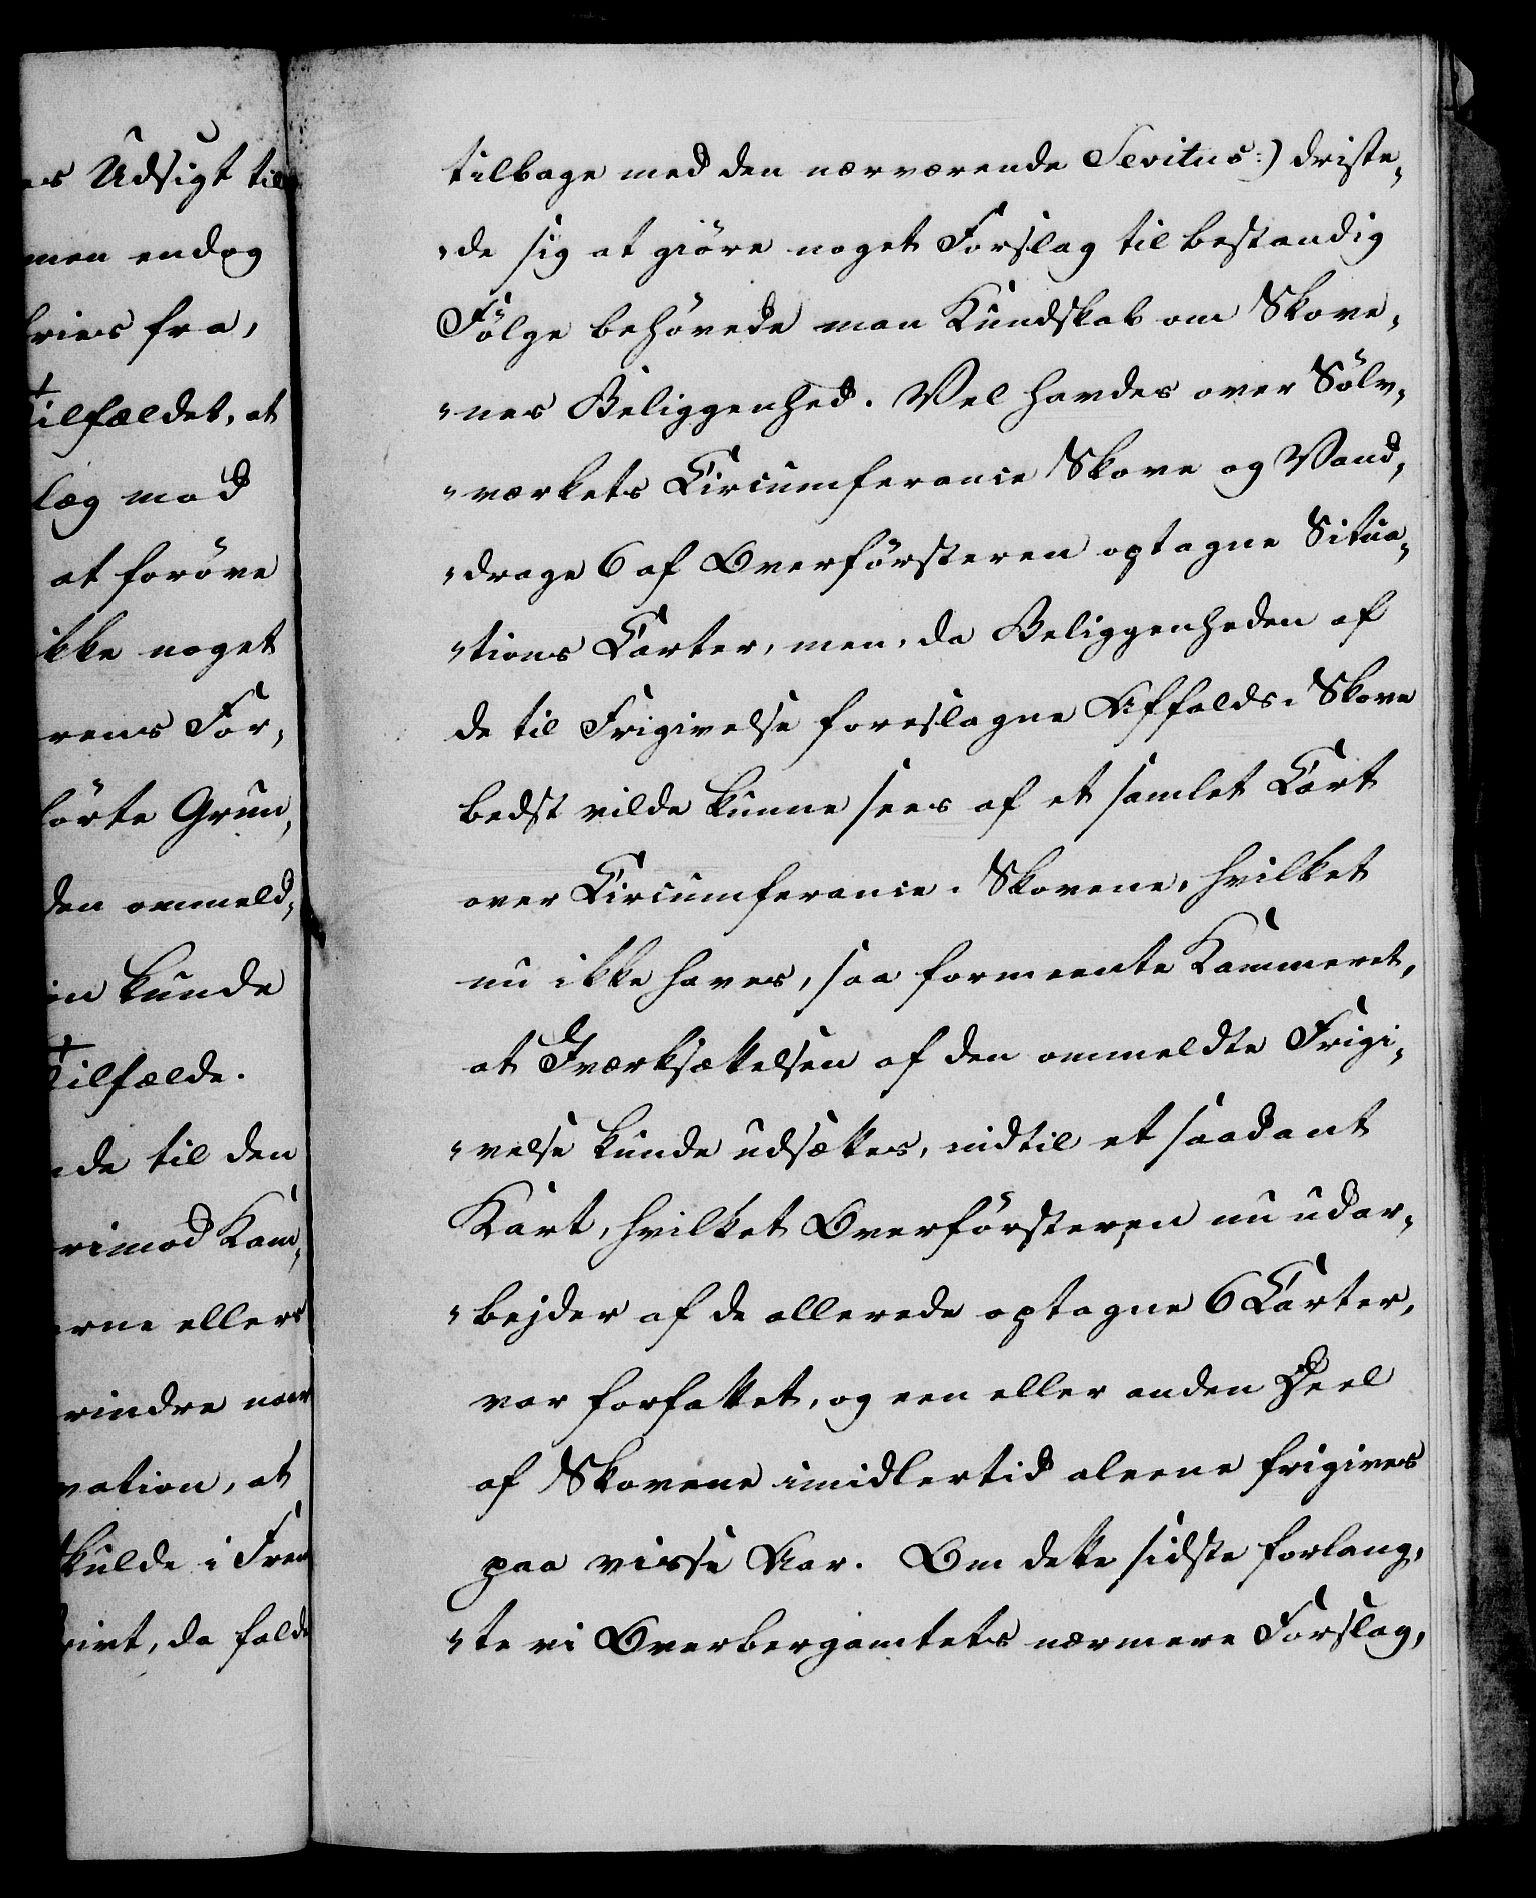 es Udsigt til
men endog
kries fra,
Tilfældet, at
læg mod
at forøve
ikke noget
rens For-
førte Grun-
den ommeld-
in kunde
Tilfælde.
nde til den
rimod Kam-
erne eller
rindre naar
vation, at
skulde i Frem
givt, da faldt
tilbage med den nærværende Sevitus:) driste-
-de sig at giöre noget Forslag til bestandig
Fölge behövede man Kundskab om Skove-
-nes Beliggenhed. Vel havdes over Sölv-
-værkets Circumferance Skove og Vand-
-drage 6 af Overförsteren optagne Situa-
-tions Carter, men, da Beliggenheden af
de til Frigivelse foreslagne Affalds-Skove
bedst vilde kunne sees af et samlet Cart
over Circumferance-Skovene, hvilket
nu ikke haves, saa formeente Kammeret,
at Iværksættelsen af den ommeldte Frigi-
-velse kunde udsættes, indtil et saadant
Kart, hvilket Overförsteren nu udar-
-bejder af de allerede optagne 6 Carter,
var forfattet, og een eller anden Deel
af Skovene imidlertid aleene frigives
paa visse Aar. Om dette sidste forlang-
-te vi Overbergamtets nærmere Forslag,